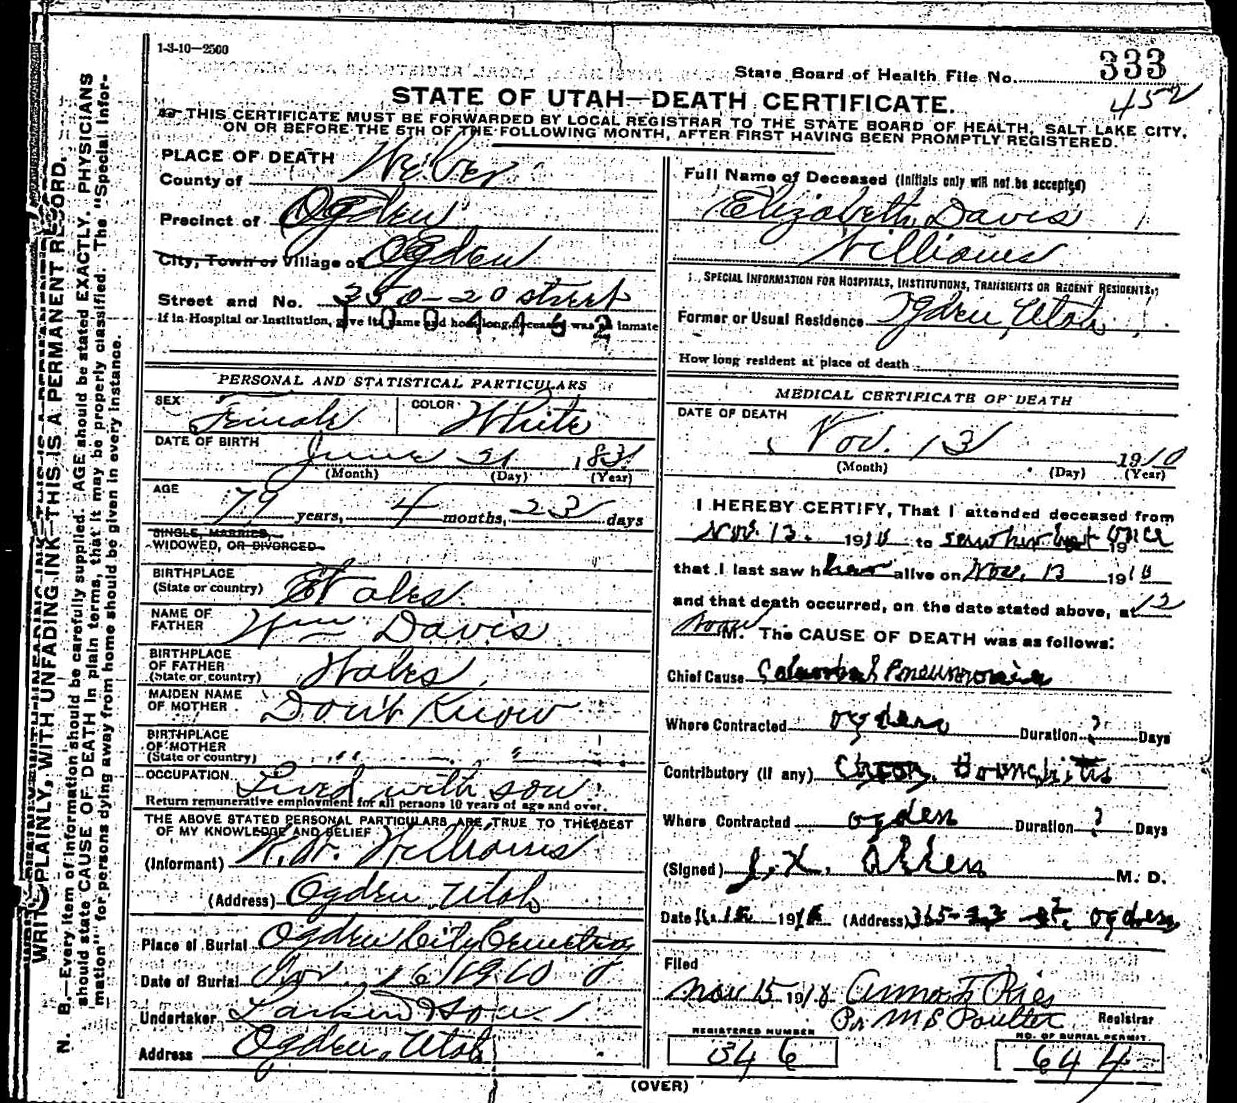 1-3-10—2500
State Board of Health File No. 333
452
STATE OF UTAH—DEATH CERTIFICATE.
THIS CERTIFICATE MUST BE FORWARDED BY LOCAL REGISTRAR TO THE STATE BOARD OF HEALTH, SALT LAKE CITY,
ON OR BEFORE THE 5TH OF THE FOLLOWING MONTH, AFTER FIRST HAVING BEEN PROMPTLY REGISTERED.
WRITE PLAINLY, WITH UNFADING INK—THIS IS A PERMANENT RECORD.
N. B.—Every item of information should be carefully supplied. AGE should be stated EXACTLY. PHYSICIANS
should state CAUSE OF DEATH in plain terms, that it may be properly classified. The "Special Infor-
mation" for persons dying away from home should be given in every instance.
PLACE OF DEATH
County of Weber
Precinct of Ogden
City, Town or Village of Ogden
Street and No. 350-20 street
If in Hospital or Institution, give its name and how long deceased was an inmate
1004152
PERSONAL AND STATISTICAL PARTICULARS
SEX Female COLOR White
DATE OF BIRTH
June 21 1831
(Month) (Day) (Year)
AGE
79 years, 4 months, 23 days
SINGLE, MARRIED,
WIDOWED, OR DIVORCED
BIRTHPLACE
(State or country) Wales
NAME OF
FATHER Wm Davis
BIRTHPLACE
OF FATHER
(State or country) Wales
MAIDEN NAME
OF MOTHER Don't Know
BIRTHPLACE
OF MOTHER
(State or country) " "
OCCUPATION Lived with son
Return remunerative employment for all persons 10 years of age and over.
THE ABOVE STATED PERSONAL PARTICULARS ARE TRUE TO THE BEST
OF MY KNOWLEDGE AND BELIEF
(Informant) Williams
(Address) Ogden, Utah
Place of Burial Ogden City Cemetery
Date of Burial Nov. 16 1910
Undertaker Larkin & Sons
Address Ogden, Utah
Full Name of Deceased (Initials only will not be accepted)
Elizabeth Davis
Williams
SPECIAL INFORMATION FOR HOSPITALS, INSTITUTIONS, TRANSIENTS OR RECENT RESIDENTS:
Former or Usual Residence Ogden, Utah
How long resident at place of death
MEDICAL CERTIFICATE OF DEATH
DATE OF DEATH
Nov. 13 1910
(Month) (Day) (Year)
I HEREBY CERTIFY, That I attended deceased from
Nov. 13. 1910 to saw her but once 19
that I last saw her alive on Nov. 13 1910
and that death occurred, on the date stated above, at 12
noon M. The CAUSE OF DEATH was as follows:
Chief Cause Pneumonia
Where Contracted Ogden Duration ? Days
Contributory (if any) Chron. Bronchitis
Where Contracted Ogden Duration ? Days
(Signed) M. D.
Date 191 (Address) Ogden
Filed
Nov 15 1910 Anna F Ries
Pr M B Poulter Registrar
REGISTERED NUMBER
346
NO. OF BURIAL PERMIT
644
(OVER)